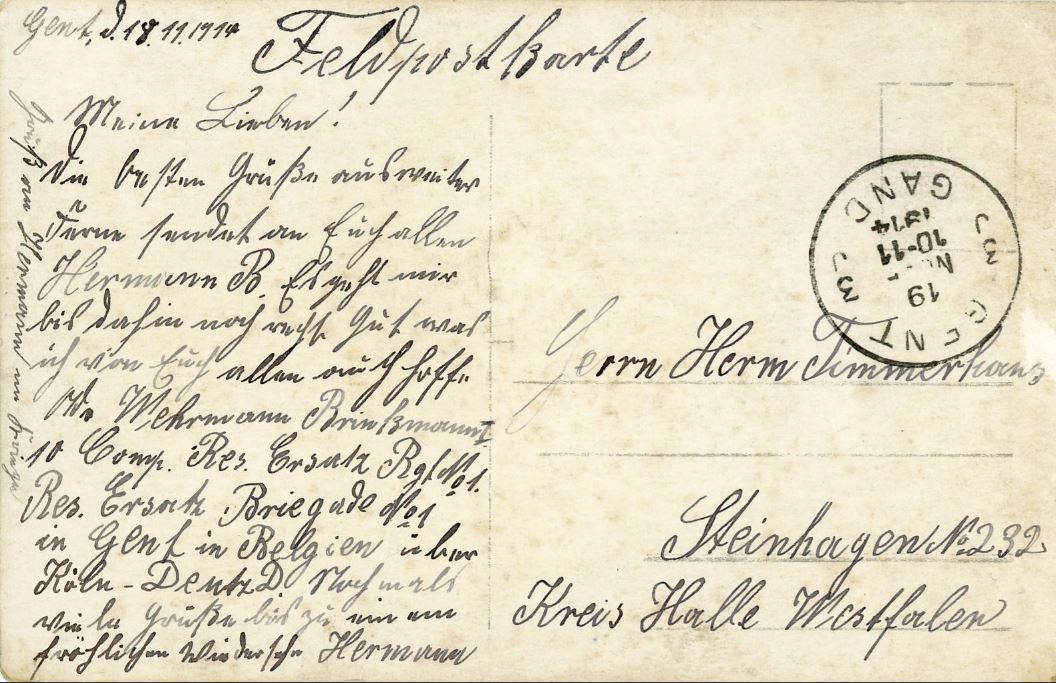 Gent, d. 18.11.1914
Feldpostkarte
Meine Lieben!
Die besten Grüße aus weiter
Ferne sendet an Euch allen
Hermann B. Es geht mir
bis dahin noch recht Gut was
ich von Euch allen auch hoffe
Adr Wehrmann Brinkmann I
10 Comp. Res. Ersatz Rgt No 1.
Res. Ersatz Briegade No 1
in Genf in Belgien über
Köln-Deutz D. Nochmals
viele Grüße bis zu ein em
fröhlichen Wiedersehn Hermann
Gruß an Hermann
Herrn Herm Timmerhans
Steinhagen No. 232
Kreis Halle Westfalen
GENT
19
10-11
1914
GAND